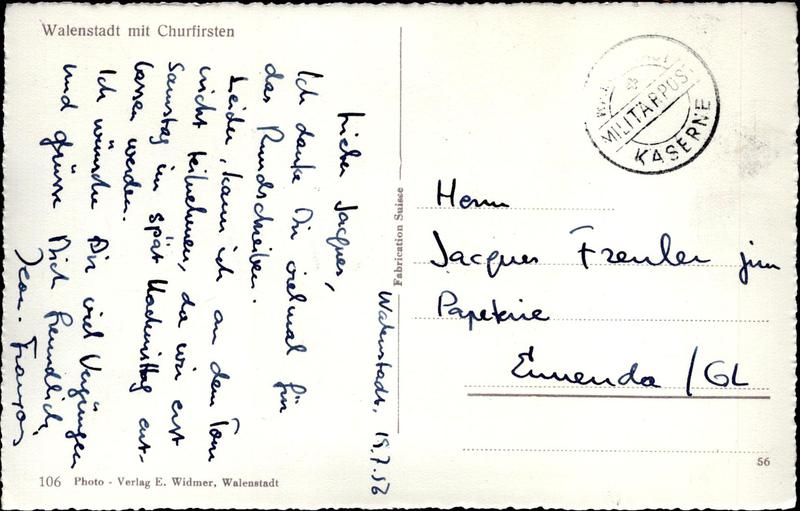 Walenstadt mit Churfirsten
Walenstadt, 19.7.56
Lieber Jacques,
Ich danke Dir vielmal für
das Rundschreiben.
Leider, kann ich an dem Tour
nicht teilnehmen, da wir erst
Samstag im spät Nachmittag ent-
lassen werden.
Ich wünsche Dir viel Vergnügen
und grüsse Dich freundlich,
Jean-François
Fabrication Suisse
MILITÄRPOST
KASERNE
Herrn
Jacques Frenler jun
Papeterie
Ennenda / GL
56
106 Photo - Verlag E. Widmer, Walenstadt